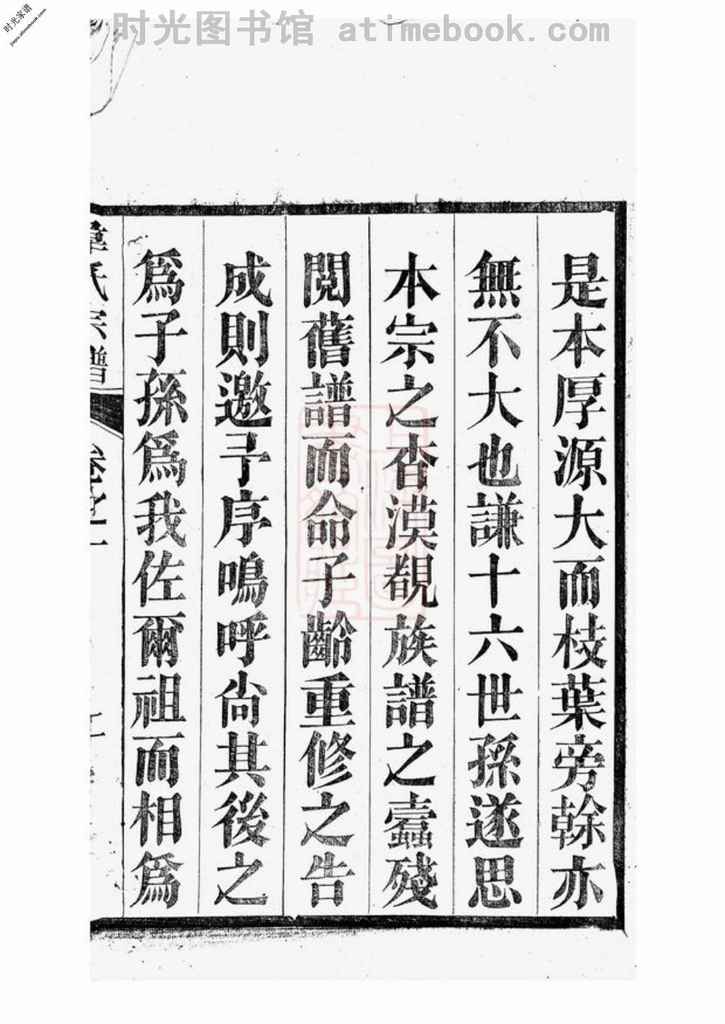 时光图书馆 atimebook.com
时光家谱
是本厚源大而枝葉旁榦亦
無不大也謙十六世孫遂思
本宗之杳漠覩族譜之蠹殘
閱舊譜而命子齡重修之告
成則邀予序嗚呼尙其後之
為子孫為我佐爾祖而相為
氏宗譜
卷之